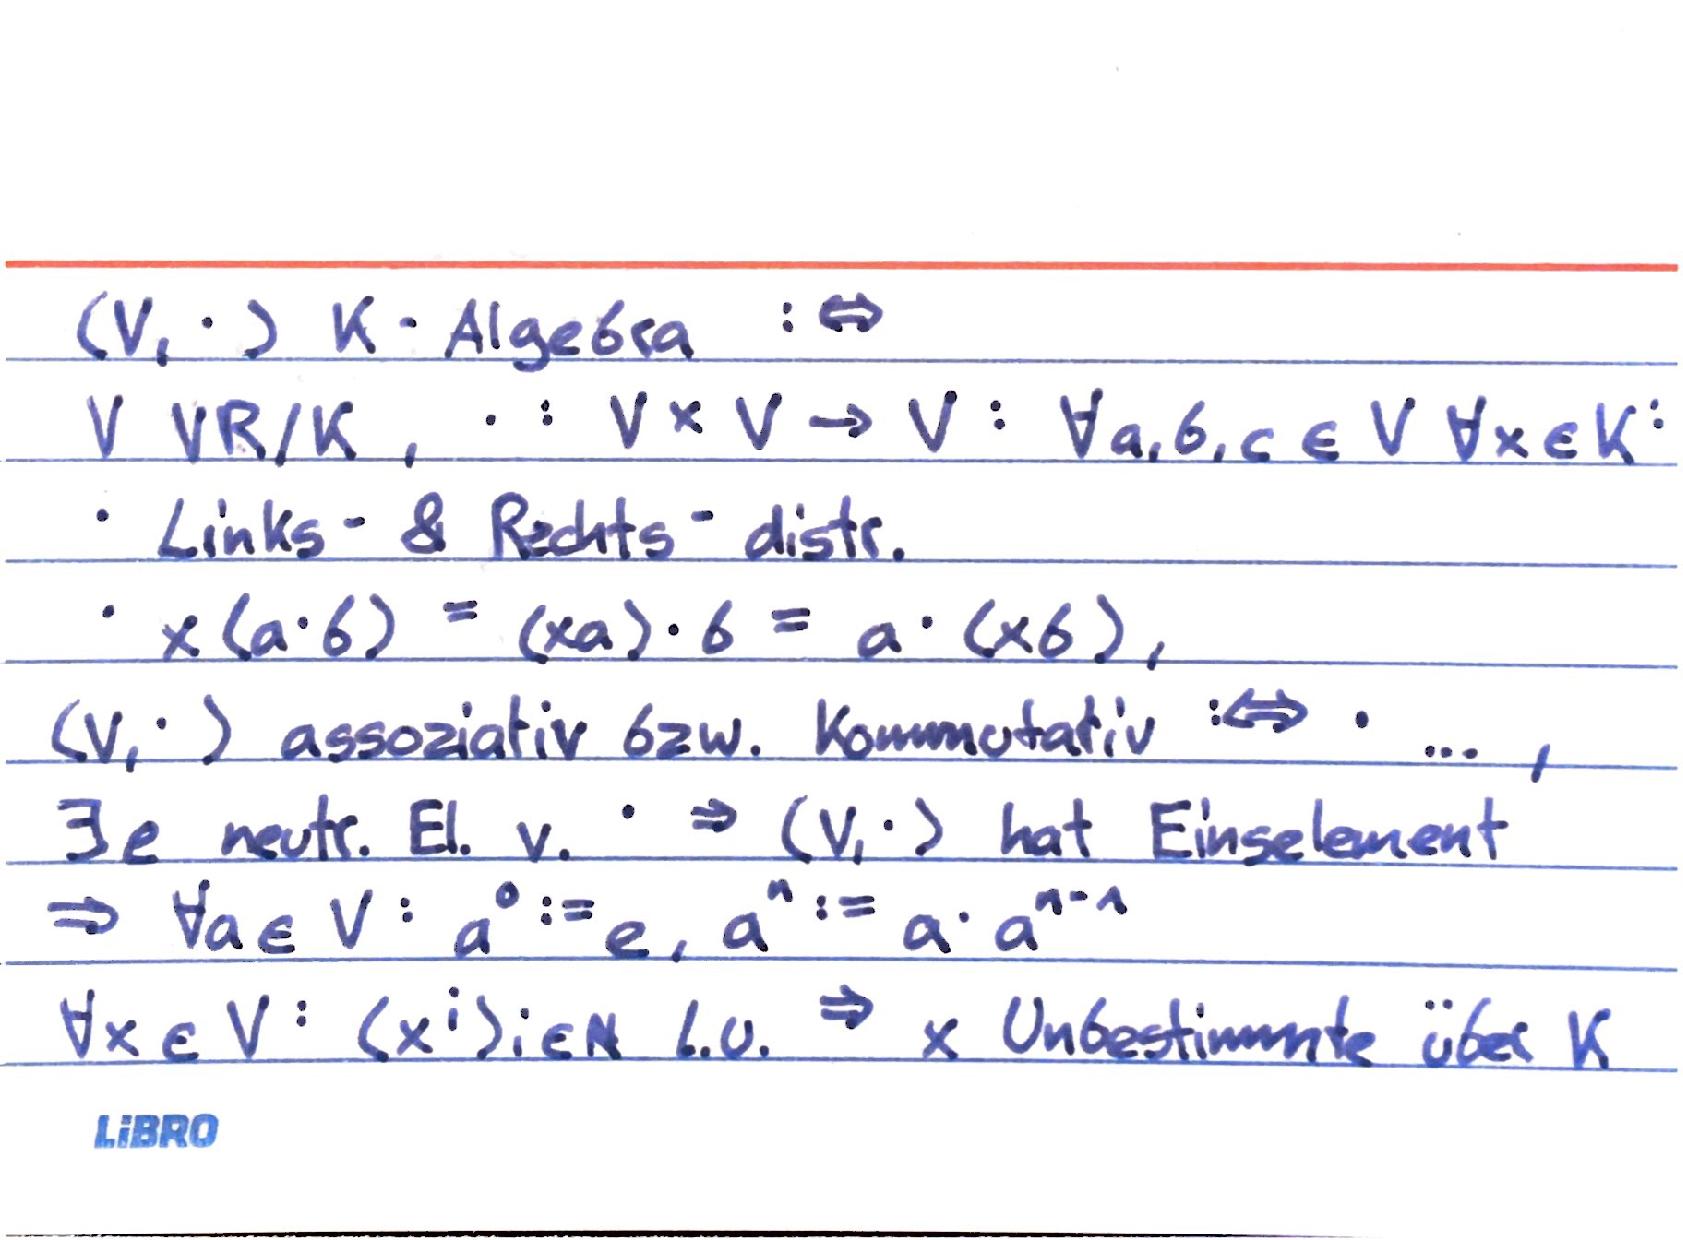 (V, ·) K-Algebra :⇔
V VR/K, · : V × V → V : ∀a,b,c ∈ V ∀x ∈ K:
· Links- & Rechts-distr.
· x(a·b) = (xa)·b = a·(xb),
(V, ·) assoziativ bzw. kommutativ :⇔ · ...,
∃e neutr. El. v. · ⇒ (V, ·) hat Einselement
⇒ ∀a ∈ V : a⁰ := e, aⁿ := a·aⁿ⁻¹
∀x ∈ V : (xⁱ)i∈ℕ l.u. ⇒ x Unbestimmte über K
LiBRO